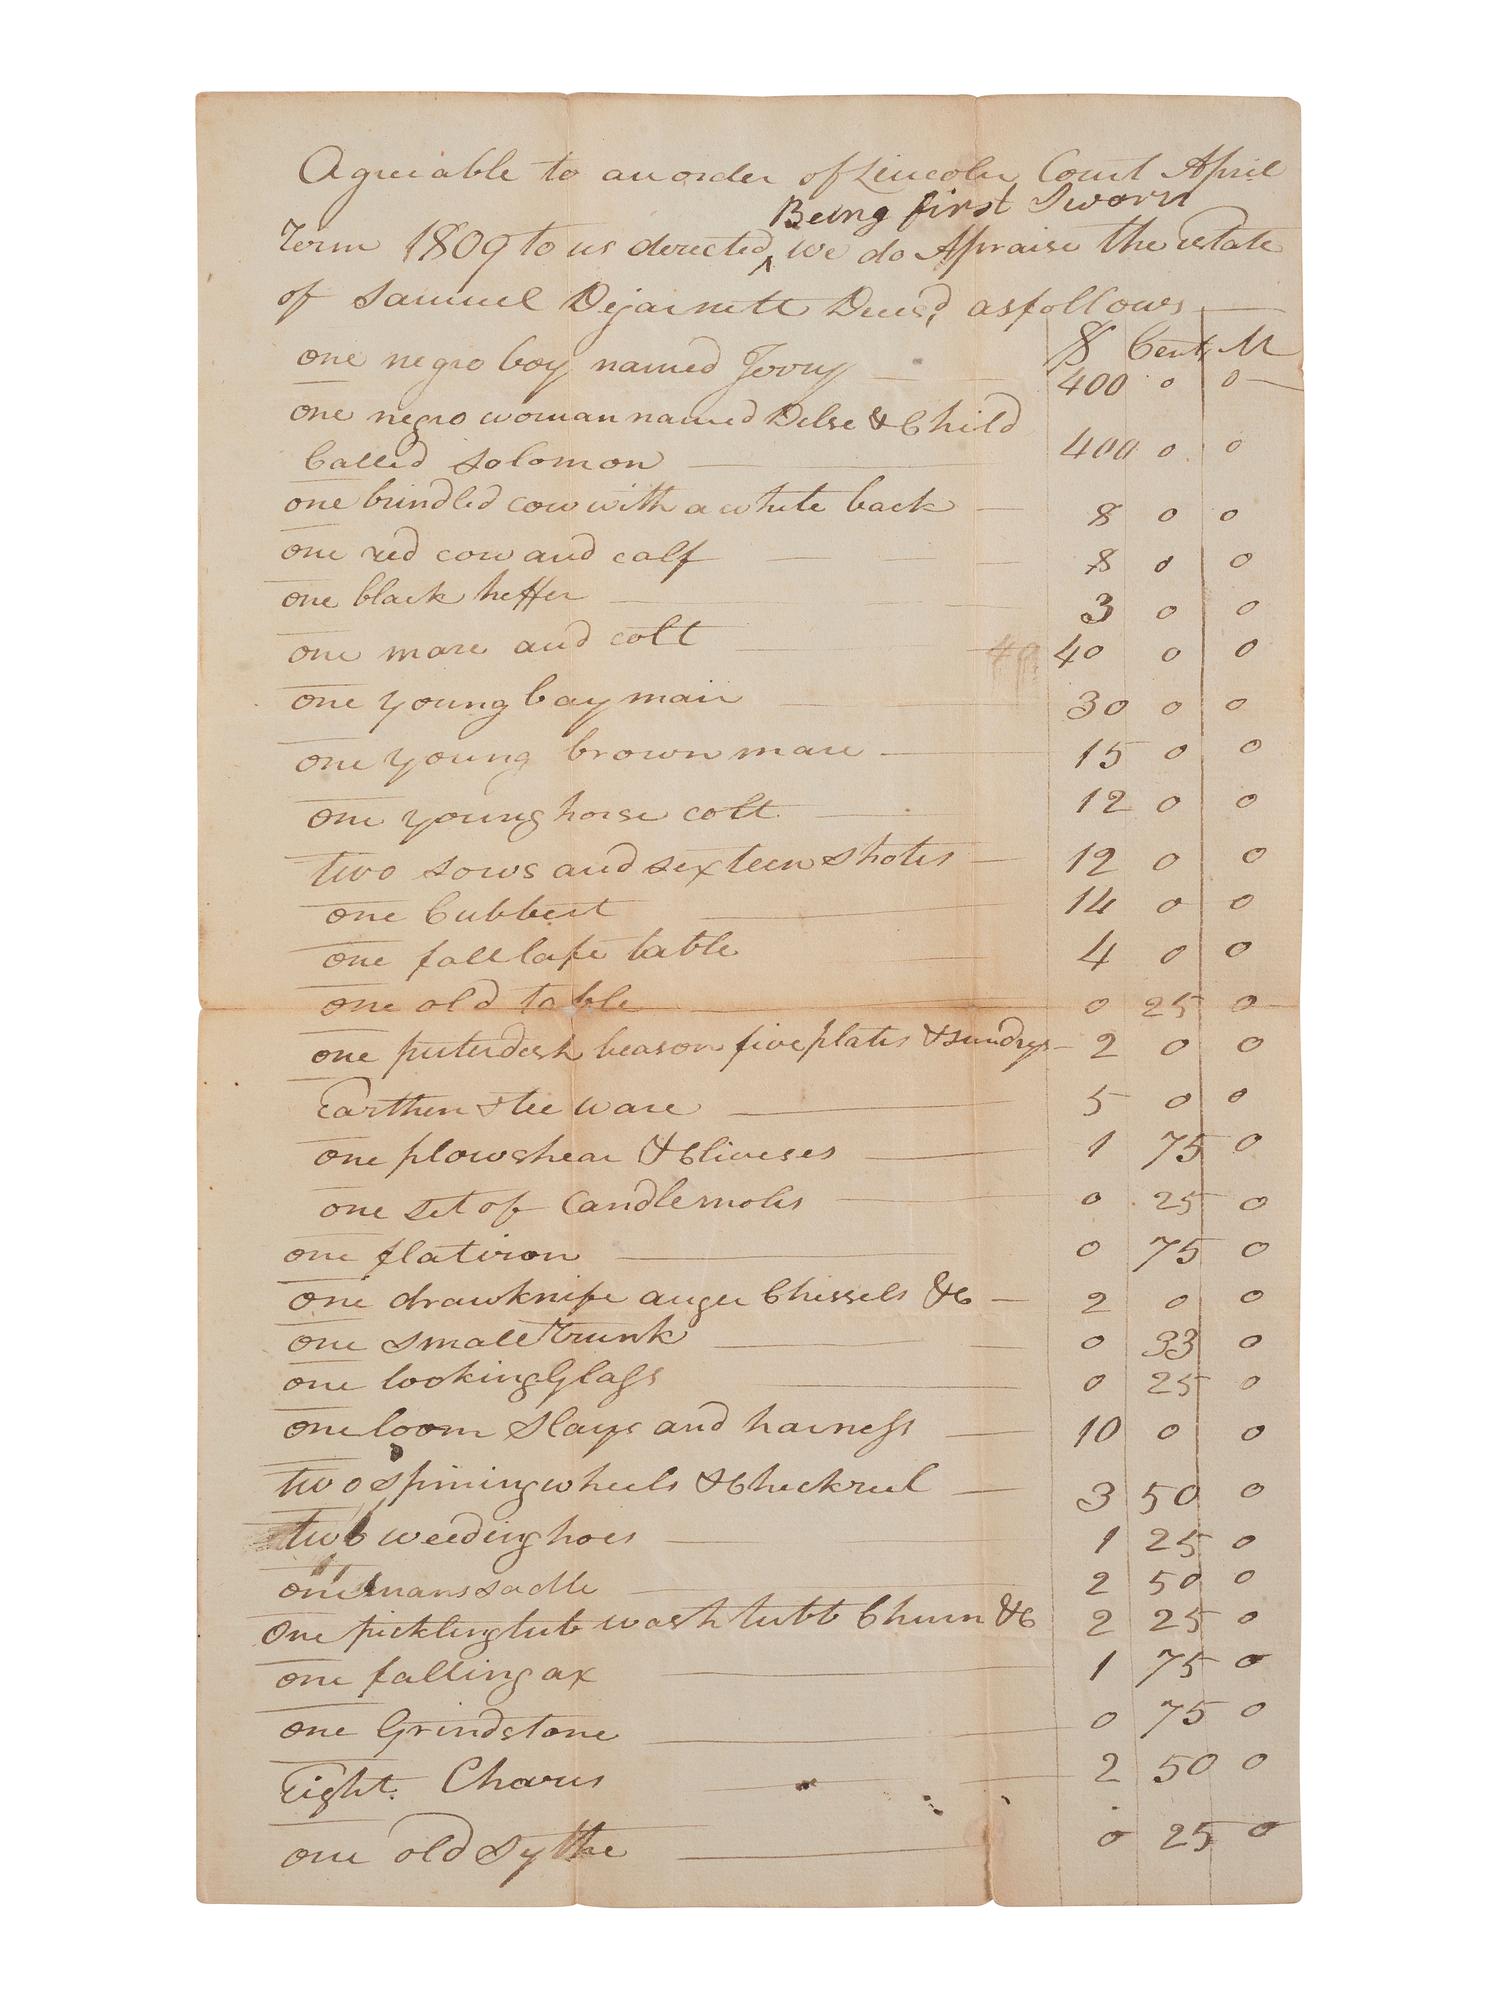 Agreiable to an order of Lincoln Court April
Being first Sworn
Term 1809 to us derected ^ we do Apraise the estate
of Samuel Dejarnett Decsd, as follows
$ Cent M
one negro boy named Jerry 400 0 0
one negro woman named Delse & Child
Called Solomon 400 0 0
one brindled cow with a white back 8 0 0
one red cow and calf 8 0 0
one black heffer 3 0 0
one mare and colt 40 40 0 0
one young bay mair 30 0 0
one young brown mare 15 0 0
one young horse colt 12 0 0
two sows and sexteen shotes 12 0 0
one Cubbert 14 0 0
one fall lafe table 4 0 0
one old table 0 25 0
one puterdesh beason five plates & sundrys 2 0 0
Earthen & tee ware 5 0 0
one plowshear & Cliveses 1 75 0
one set of Candlemoles 0 25 0
one flatiron 0 75 0
one drawknife auger Chissels &C 2 0 0
one small trunk 0 33 0
one looking Glass 0 25 0
one loom Slays and harness 10 0 0
two spining wheels & Checkreel 3 50 0
two weeding hoes 1 25 0
one mans sadle 2 50 0
One pickling tub wash tubb Churn &C 2 25 0
one falling ax 1 75 0
one Grindstone 0 75 0
Eight. Chares 2 50 0
one old Sythe 0 25 0